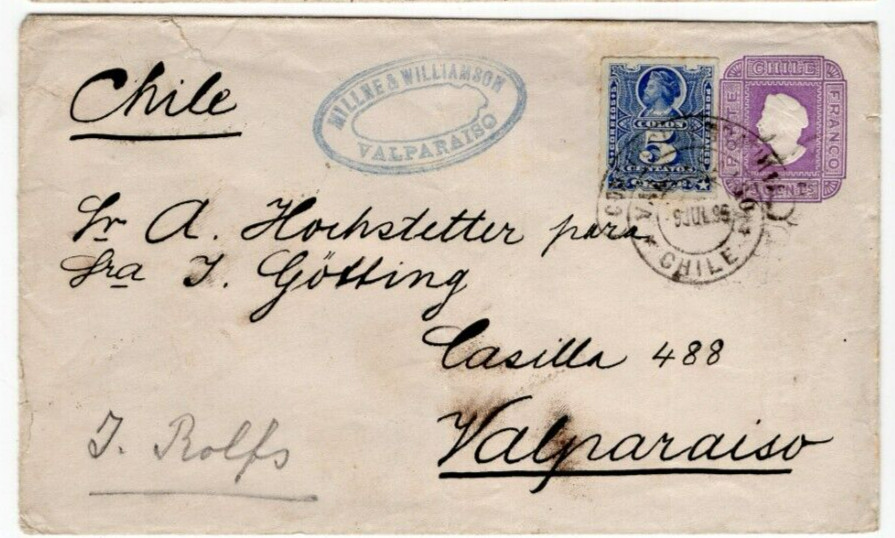 Chile
MILLNE & WILLIAMSON
VALPARAISO
COLON
5
CENTAVOS
CHILE
FRANCO
9 JUL 96
CHILE
Sr A. Hochstetter para
Sra I. Götting
Casilla 488
Valparaiso
I. Rolfs